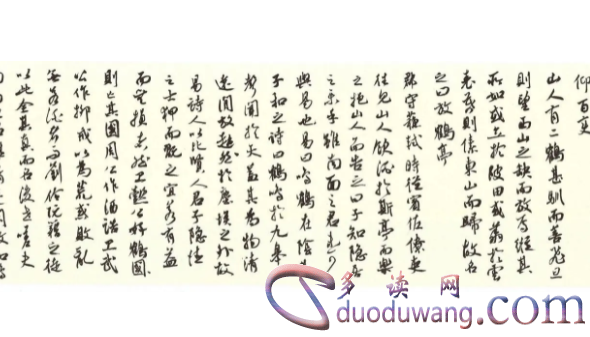 仰百變
山人有二鶴甚馴而善飛旦
則望西山之缺而放焉縱其
所如或立於陂田或翔於雲
表暮則傃東山而歸故名
之曰放鶴亭
郡守蘇軾時從賓佐僚吏
往見山人飲酒於斯亭而樂
之挹山人而告之曰子知隱居
之樂乎雖南面之君未可
與易也易曰鳴鶴在陰其
子和之詩曰鶴鳴於九皋
聲聞於天蓋其為物清
遠閒放超然於塵埃之外故
易詩人以比賢人君子隱德
之士狎而玩之宜若有益
而無損者然衛懿公好鶴
則亡其國周公作酒誥衛武
公作抑戒以為荒惑敗亂
無若酒者而劉伶阮籍之徒
以此全其真而名後世嗟夫
多读网
duoduwang.com